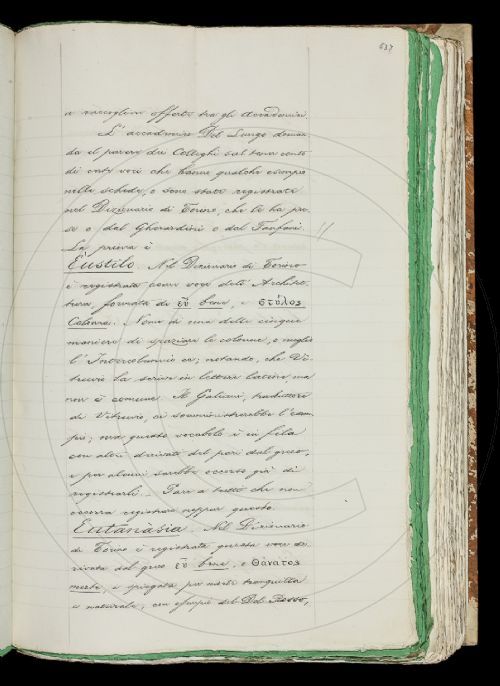 637
a raccogliere offerte tra gli Accademici.
L'accademico Del Lungo doman-
da il parere dei Colleghi sul tener conto
di certe voci che hanno qualche esempio
nelle schede, o sono state registrate
nel Dizionario di Torino, che le ha pre-
se o dal Gherardini o dal Fanfani.
La prima è
Eustilo. Nel Dizionario di Torino
è registrata come voce dell'Architet-
tura, formata da εὖ bene, e στύλος
Colonna. Nome di una delle cinque
maniere di spaziare le colonne, o meglio
l'Intercolunnio, notando, che Vi-
truvio la scrive in lettere latine, ma
non è comune. Il Galiani, traduttore
di Vitruvio, ci somministrerebbe l'esem-
pio; ora questo vocabolo è in fila
con altri derivati del pari dal greco,
e per alcuni sarebbe occorso già di
registrarli. Pare a tutti che non
occorra registrare neppur questo.
Eutanàsia. Nel Dizionario
di Torino è registrata questa voce de-
rivata dal greco εὖ bene, e θάνατος
morte, e spiegata per morte tranquilla
e naturale, con esempio del Del Rosso,